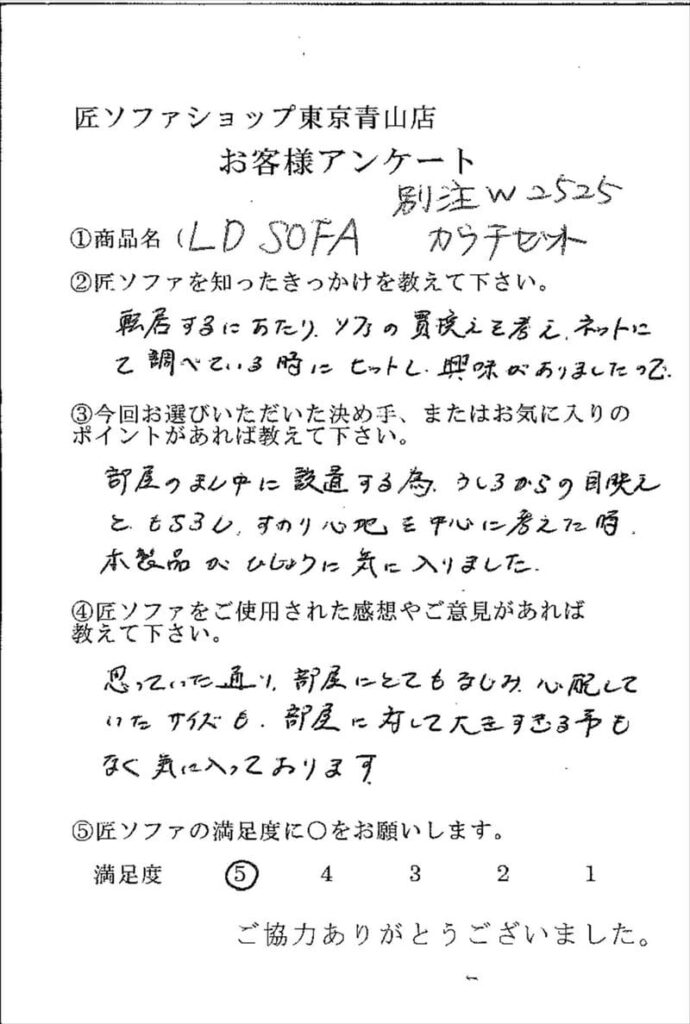 匠ソファショップ東京青山店
お客様アンケート
別注 W2525
①商品名(LD SOFA カウチセット
②匠ソファを知ったきっかけを教えて下さい。
転居するにあたり、ソファの買換えを考え、ネットに
て調べている時にヒットし、興味がありましたので.
③今回お選びいただいた決め手、またはお気に入りの
ポイントがあれば教えて下さい。
部屋のまん中に設置する為、うしろからの目映え
と、もちろん、すわり心地を中心に考えた時、
本製品がひじょうに気に入りました.
④匠ソファをご使用された感想やご意見があれば
教えて下さい。
思っていた通り、部屋にとてもなじみ、心配して
いたサイズも、部屋に対して大きすぎる事も
なく気に入っております
⑤匠ソファの満足度に〇をお願いします。
満足度 ⑤ 4 3 2 1
ご協力ありがとうございました。